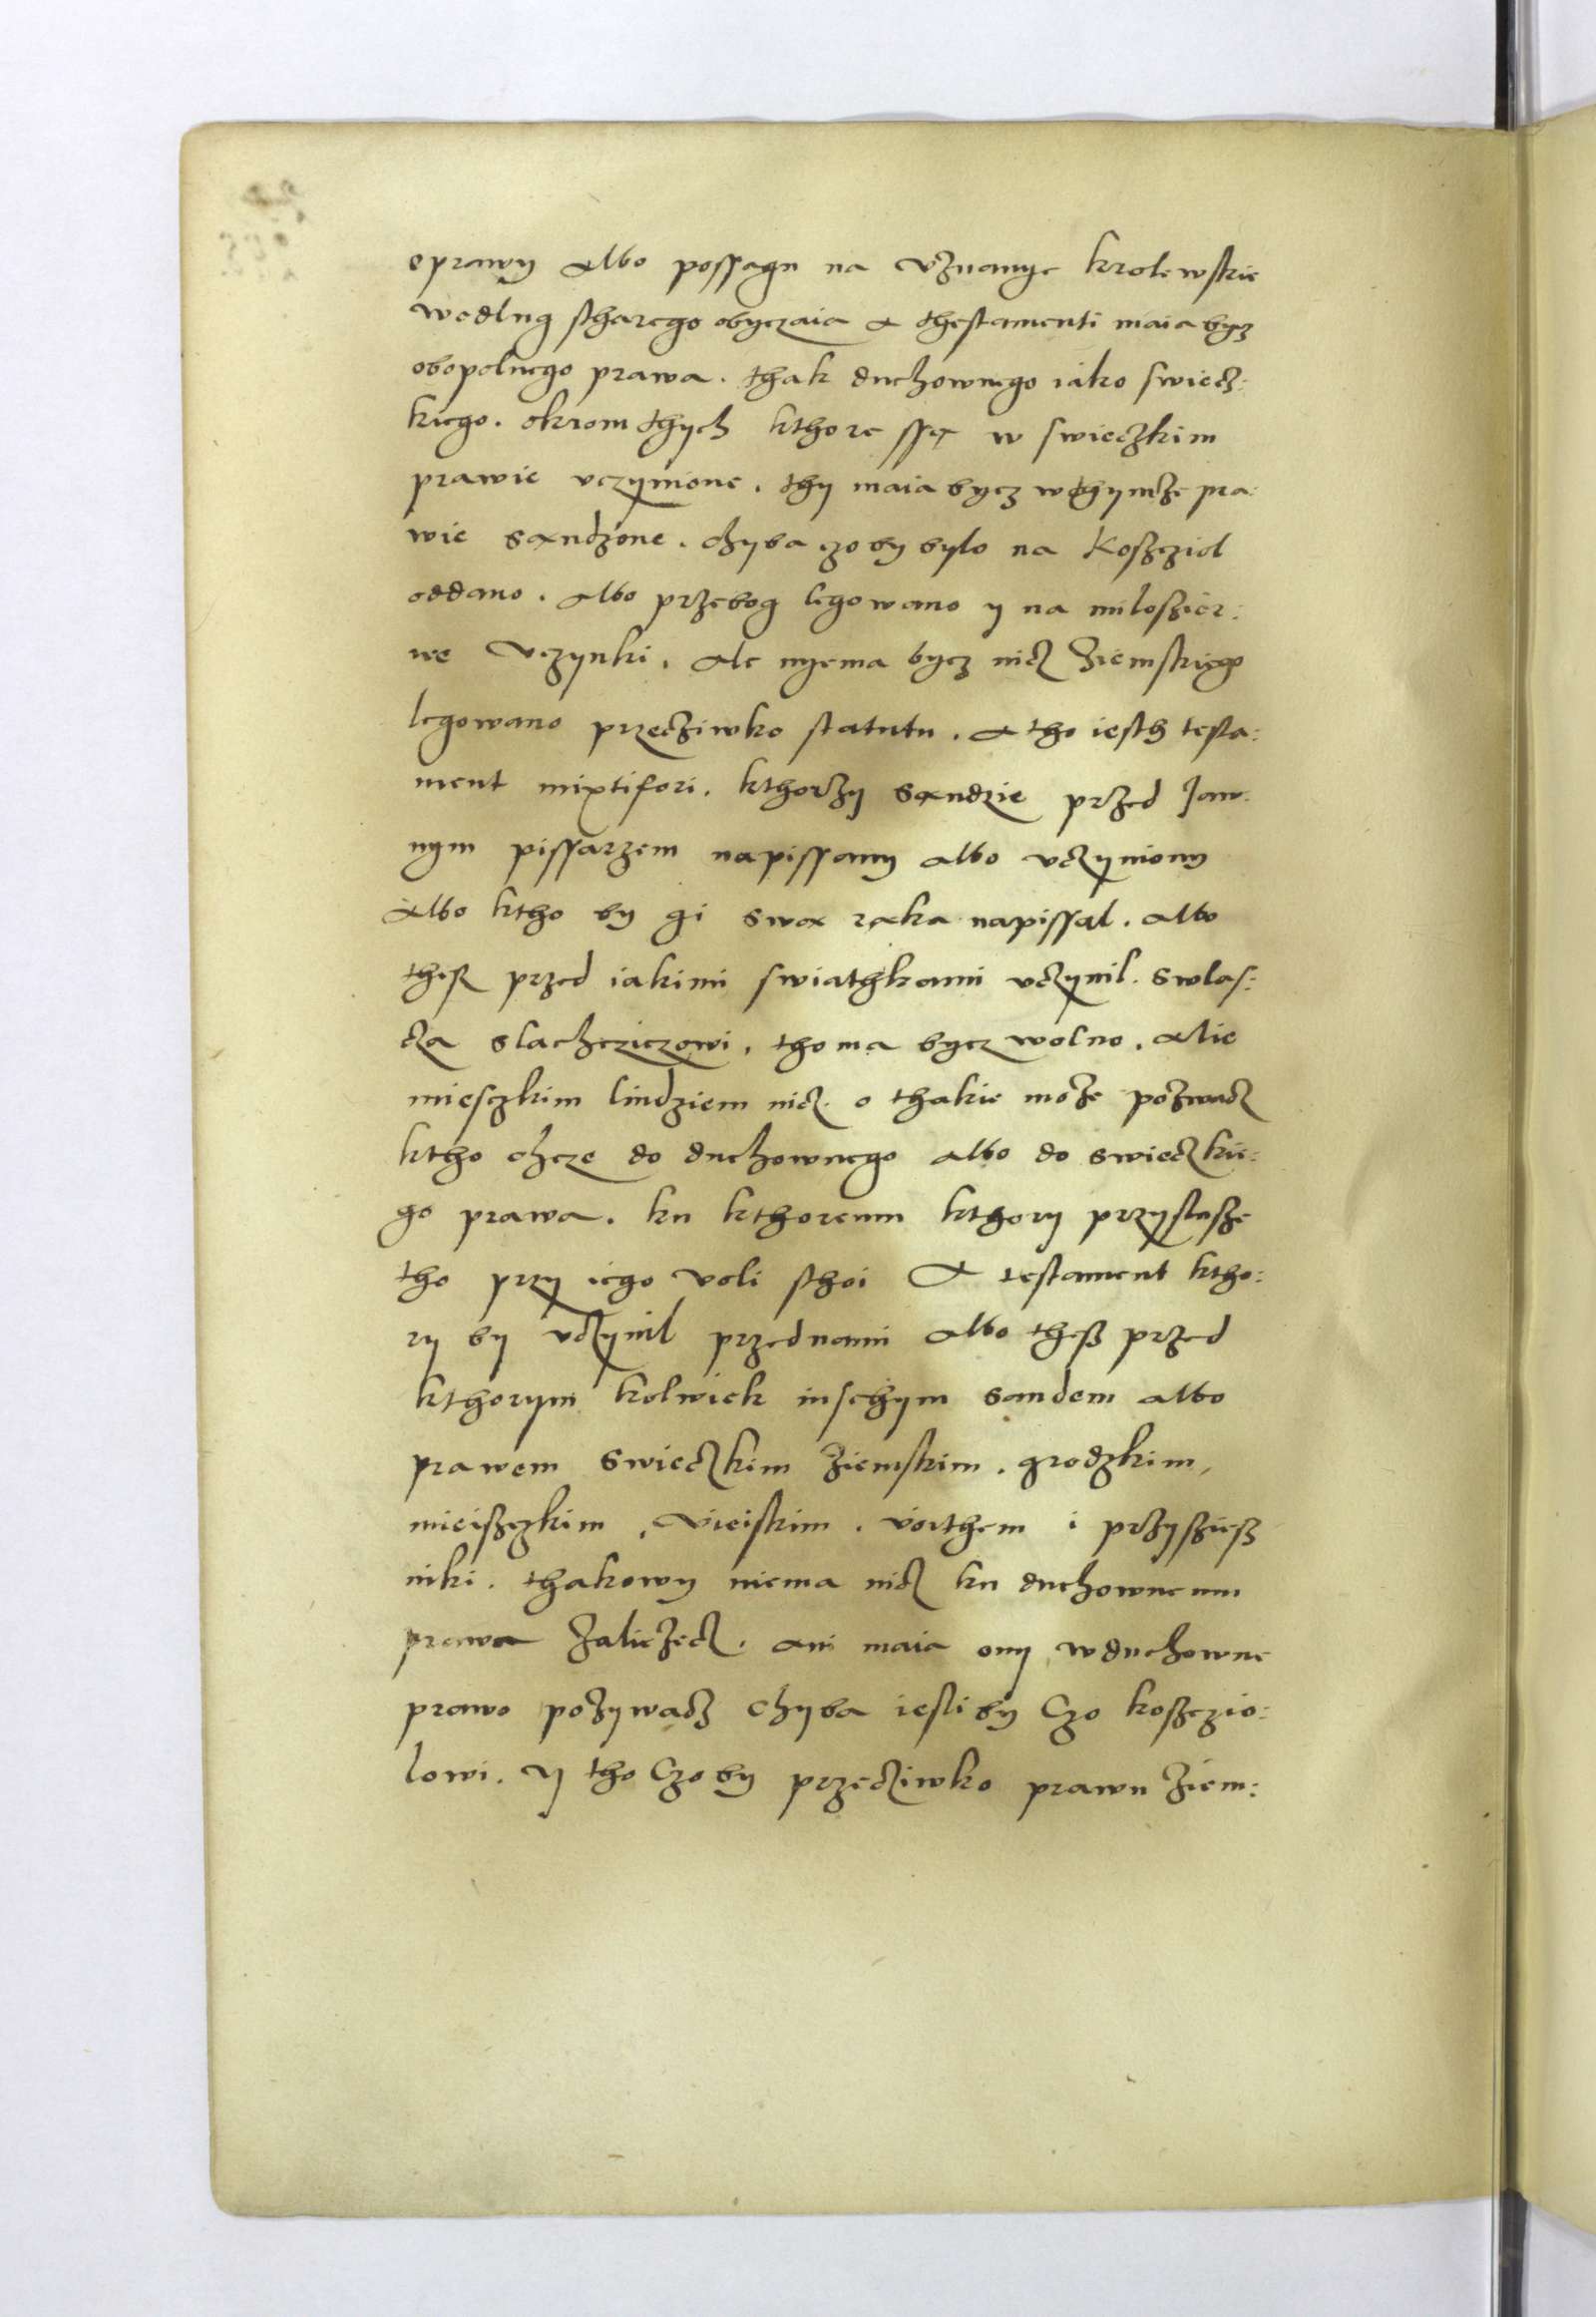 oprawy albo possagu na vznanye krolewskie
wedlug starego obyczaia a thestamenti maia bycz
obopolnego prawa. thak duchownego iako swiecz:
kiego. okrom thych kthore ssą w swieczkim
prawie vczynione. thy maia bycz w thymże pra:
wie sandzone. chyba czo by bylo na Koszcziol
oddano. albo przebog legowano y na miloszier:
ne Vczynki. ale nyema bycz nicz Ziemskiego
legowano przecziwko statutu. a tho iesth testa:
ment mixtifori. kthorży sandzie przed Jaw:
nym pissarzem napissany albo vczyniony
albo ktho by gi swa raka napissal. albo
thesz przed iakimi swiathkami vczynil. swlas:
cza slachcziczowi, tho ma bycz wolno. alie
miesczkim liudziem nicz. o thakie może pożwacz
ktho chcze do duchownego albo do swieczkie:
go prawa. ku kthoremu kthory przystaże
tho przy iego voli sthoi A testament ktho:
ry by vczynil przed nami albo thesz przed
kthorym kolwiek inschym sandem albo
prawem swieczkim ziemskim. grodzkim,
mieiszczkim, Vieiskim. voithem i przyszięsz
niki. thakowy niema nicz ku duchownemu
prawa żalieżecz. ani maia ony w duchowne
prawo pożywacz chyba iesli by Czo koszczio:
lowi. y tho Czo by przecziwko prawu żiem: